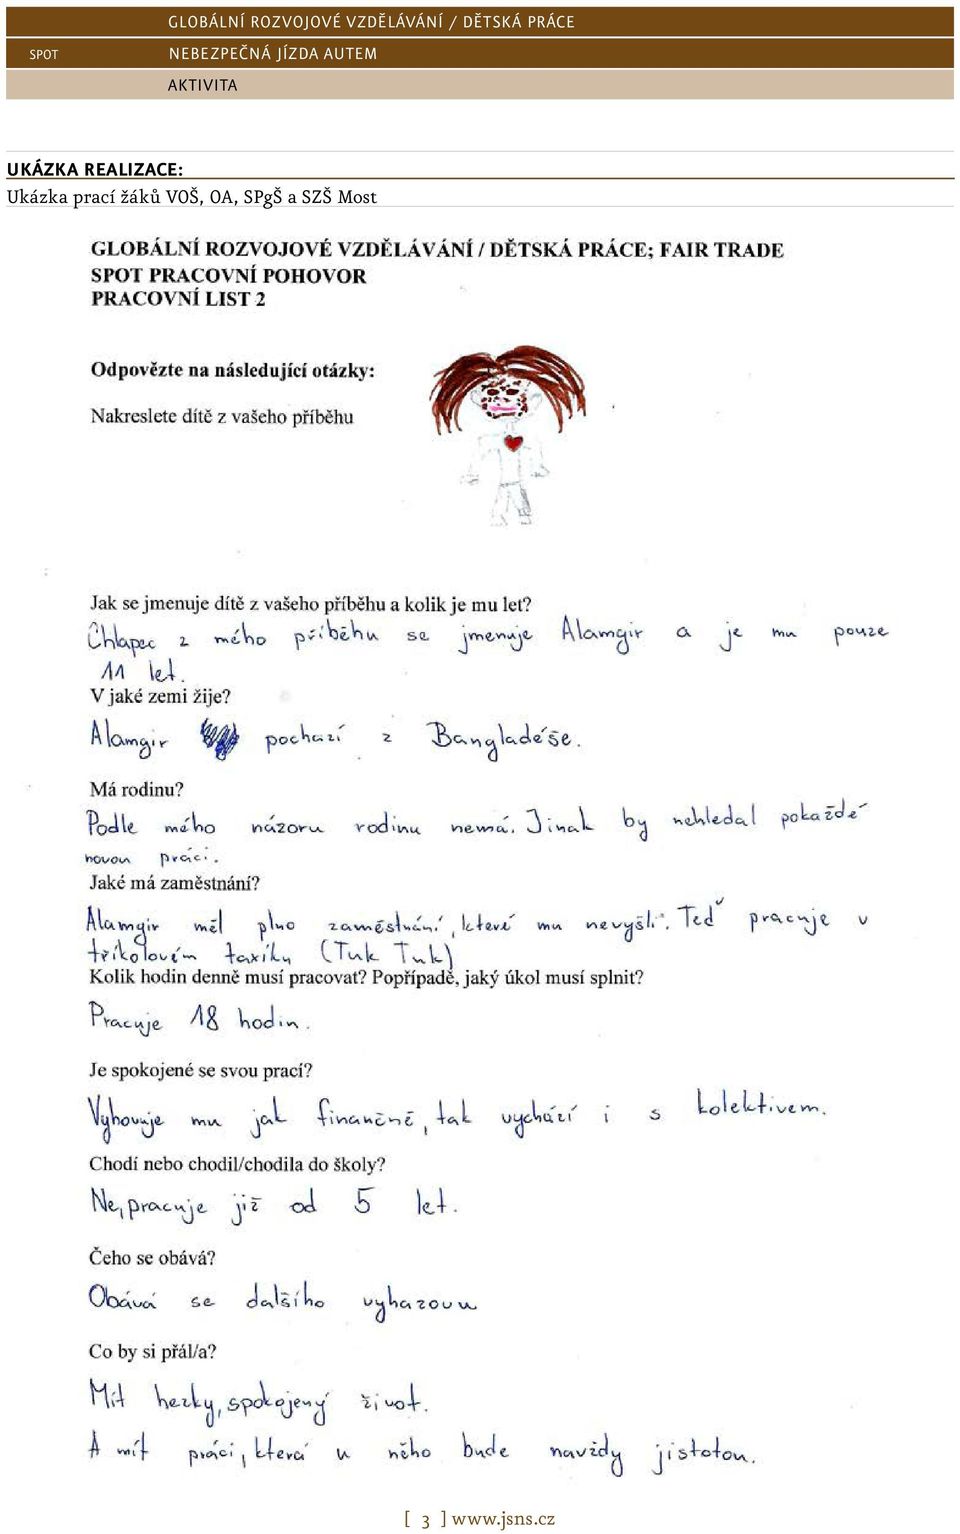 GLOBÁLNÍ ROZVOJOVÉ VZDĚLÁVÁNÍ / DĚTSKÁ PRÁCE
SPOT NEBEZPEČNÁ JÍZDA AUTEM
AKTIVITA
UKÁZKA REALIZACE:
Ukázka prací žáků VOŠ, OA, SPgŠ a SZŠ Most
GLOBÁLNÍ ROZVOJOVÉ VZDĚLÁVÁNÍ / DĚTSKÁ PRÁCE; FAIR TRADE
SPOT PRACOVNÍ POHOVOR
PRACOVNÍ LIST 2
Odpovězte na následující otázky:
Nakreslete dítě z vašeho příběhu
Jak se jmenuje dítě z vašeho příběhu a kolik je mu let?
Chlapec z mého příběhu se jmenuje Alamgir a je mu pouze
11 let.
V jaké zemi žije?
Alamgir pochází z Bangladéše.
Má rodinu?
Podle mého názoru rodinu nemá. Jinak by nehledal pokaždé
novou práci.
Jaké má zaměstnání?
Alamgir měl plno zaměstnání, které mu nevyšli. Teď pracuje v
tříkolovém taxíku (Tuk Tuk)
Kolik hodin denně musí pracovat? Popřípadě, jaký úkol musí splnit?
Pracuje 18 hodin.
Je spokojené se svou prací?
Vyhovuje mu jak finančně, tak vychází i s kolektivem.
Chodí nebo chodil/chodila do školy?
Ne, pracuje již od 5 let.
Čeho se obává?
Obává se dalšího vyhazovu
Co by si přál/a?
Mít hezky, spokojený život.
A mít práci, která u něho bude navždy jistotou.
[ 3 ] www.jsns.cz